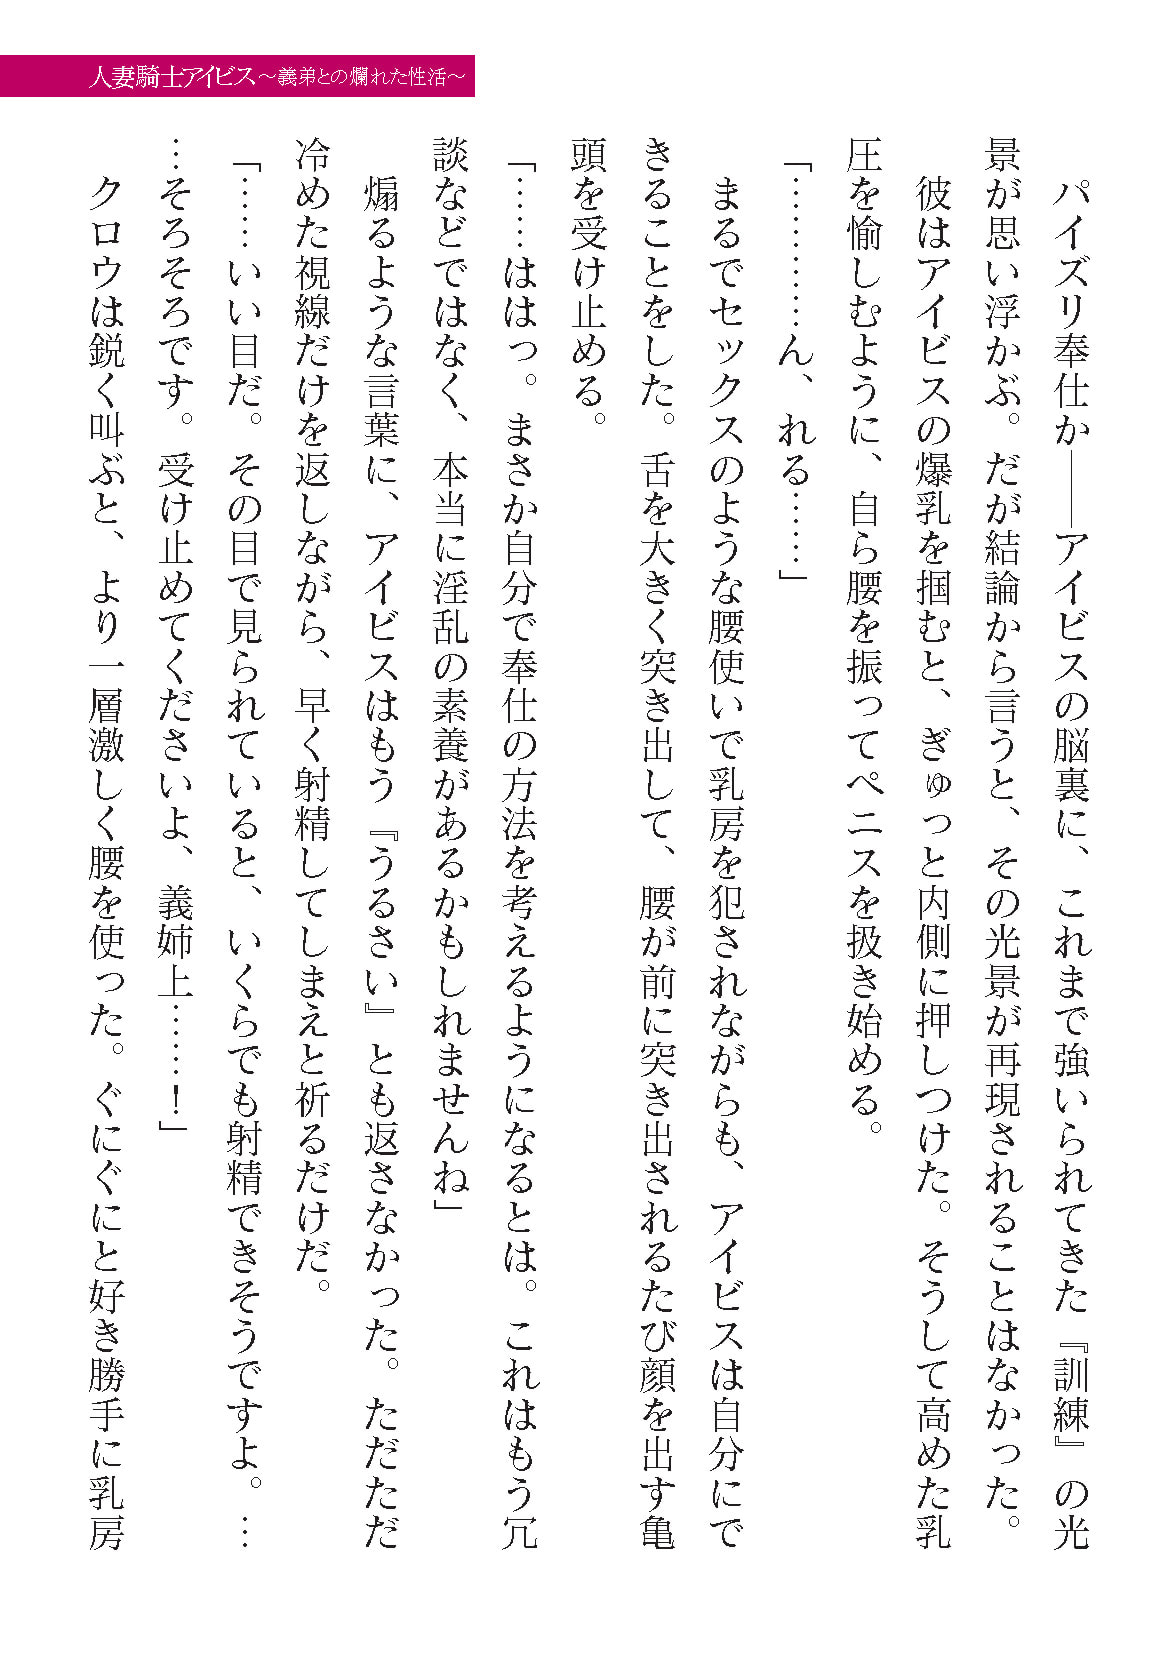 人妻騎士アイビス～義弟との爛れた性活～
　パイズリ奉仕か――アイビスの脳裏に、これまで強いられてきた『訓練』の光
景が思い浮かぶ。だが結論から言うと、その光景が再現されることはなかった。
　彼はアイビスの爆乳を掴むと、ぎゅっと内側に押しつけた。そうして高めた乳
圧を愉しむように、自ら腰を振ってペニスを扱き始める。
「…………ん、れる……」
　まるでセックスのような腰使いで乳房を犯されながらも、アイビスは自分にで
きることをした。舌を大きく突き出して、腰が前に突き出されるたび顔を出す亀
頭を受け止める。
「……ははっ。まさか自分で奉仕の方法を考えるようになるとは。これはもう冗
談などではなく、本当に淫乱の素養があるかもしれませんね」
　煽るような言葉に、アイビスはもう『うるさい』とも返さなかった。ただただ
冷めた視線だけを返しながら、早く射精してしまえと祈るだけだ。
「……いい目だ。その目で見られていると、いくらでも射精できそうですよ。…
…そろそろです。受け止めてくださいよ、義姉上……！」
　クロウは鋭く叫ぶと、より一層激しく腰を使った。ぐにぐにと好き勝手に乳房